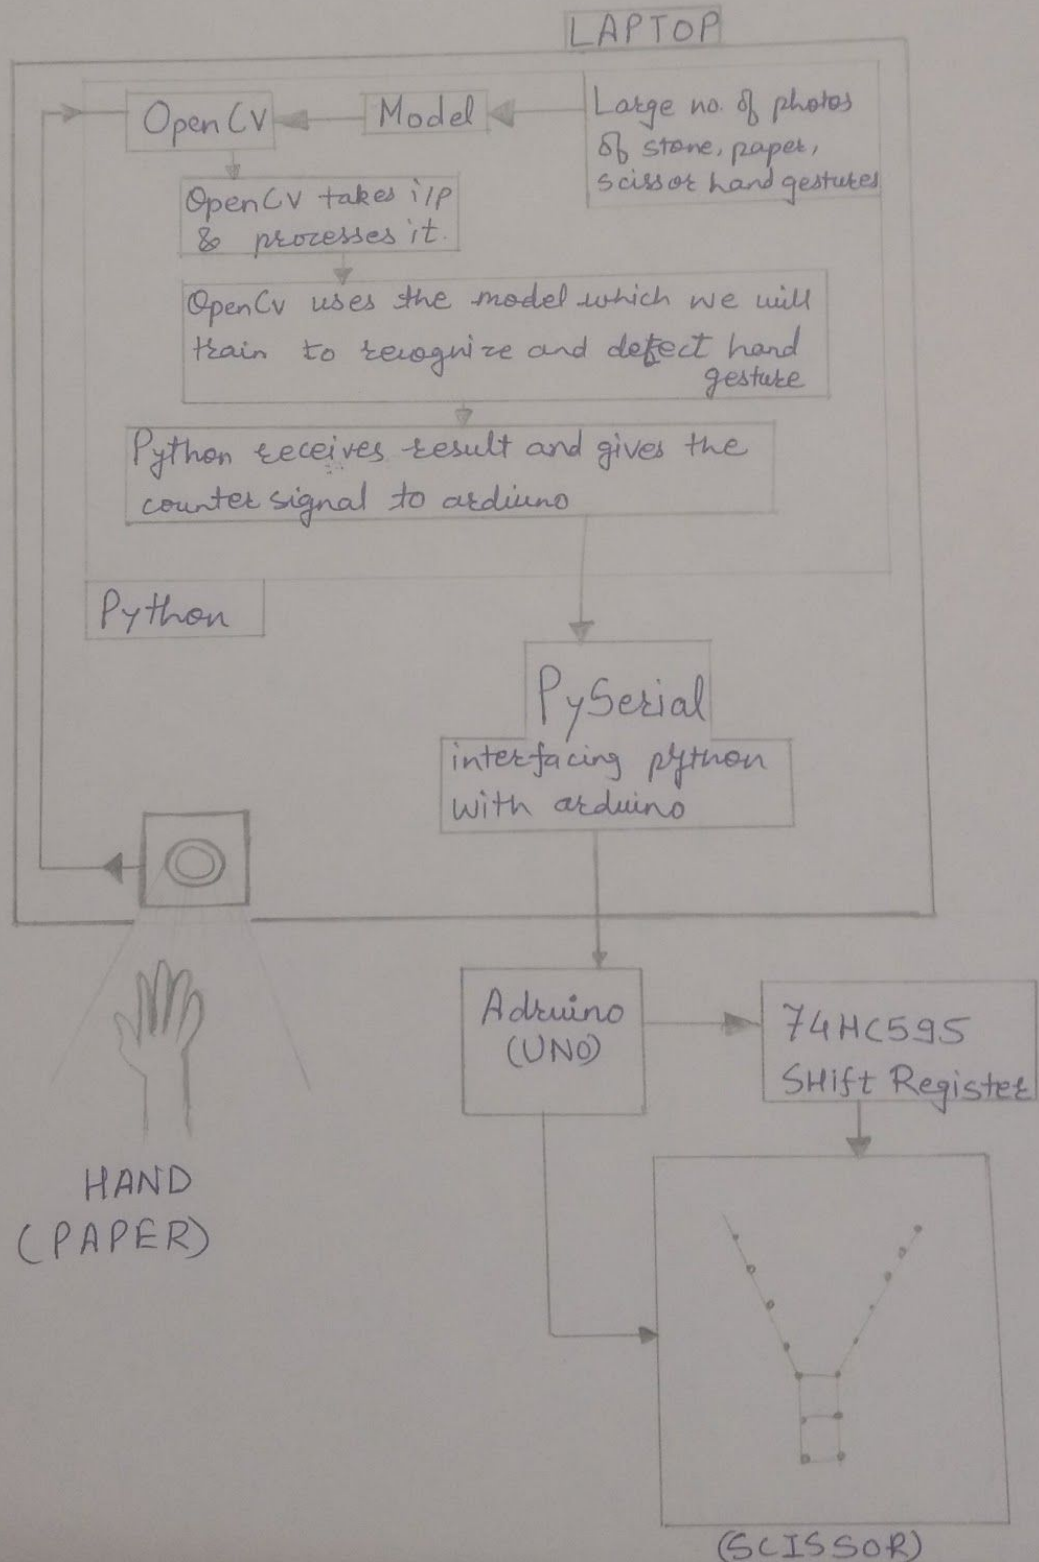 LAPTOP
OpenCV
Model
Large no. of photos
of stone, paper,
scissor hand gestures
OpenCV takes i/p
& processes it.
OpenCv uses the model which we will
train to recognize and detect hand
gesture
Python receives result and gives the
counter signal to arduino
Python
PySerial
interfacing python
with arduino
Adruino
(UNO)
74HC595
SHift Register
HAND
(PAPER)
(SCISSOR)